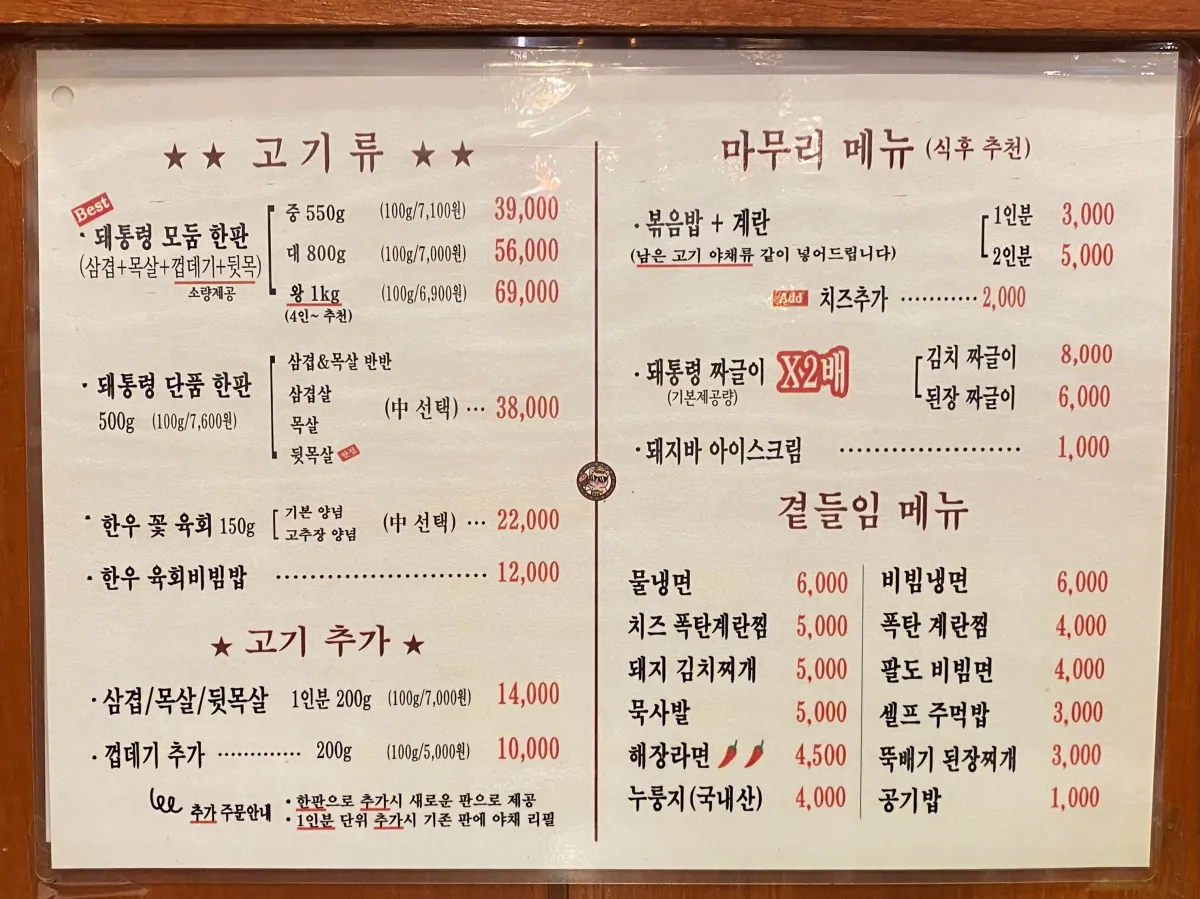 ★ ★ 고기류 ★ ★
Best
· 돼통령 모둠 한판
(삼겹+목살+껍데기+뒷목)
소량제공
중 550g (100g/7,100원) 39,000
대 800g (100g/7,000원) 56,000
왕 1kg (100g/6,900원) 69,000
(4인~ 추천)
· 돼통령 단품 한판
500g (100g/7,600원)
삼겹&목살 반반
삼겹살
목살
뒷목살
(中 선택) ··· 38,000
· 한우 꽃 육회 150g
기본 양념
고추장 양념
(中 선택) ··· 22,000
· 한우 육회비빔밥 ························ 12,000
★ 고기 추가 ★
· 삼겹/목살/뒷목살 1인분 200g (100g/7,000원) 14,000
· 껍데기 추가 ············ 200g (100g/5,000원) 10,000
추가 주문안내
· 한판으로 추가시 새로운 판으로 제공
· 1인분 단위 추가시 기존 판에 야채 리필
마무리 메뉴 (식후 추천)
· 볶음밥 + 계란
(남은 고기 야채류 같이 넣어드립니다)
1인분 3,000
2인분 5,000
Add 치즈추가 ··········· 2,000
· 돼통령 짜글이 X2배
(기본제공량)
김치 짜글이 8,000
된장 짜글이 6,000
· 돼지바 아이스크림 ····················· 1,000
곁들임 메뉴
물냉면 6,000
치즈 폭탄계란찜 5,000
돼지 김치찌개 5,000
묵사발 5,000
해장라면 🌶🌶 4,500
누룽지(국내산) 4,000
비빔냉면 6,000
폭탄 계란찜 4,000
팔도 비빔면 4,000
셀프 주먹밥 3,000
뚝배기 된장찌개 3,000
공기밥 1,000